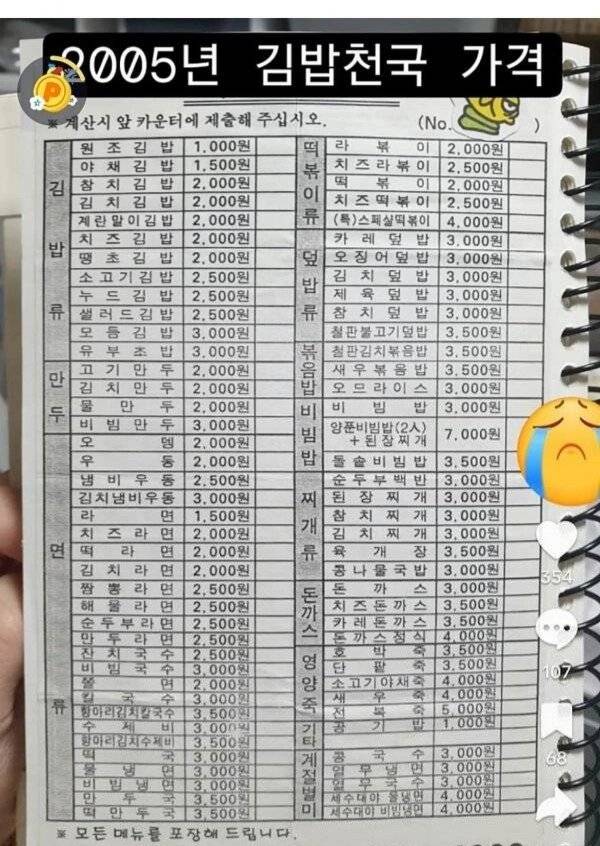 2005년 김밥천국 가격
※ 계산시 앞 카운터에 제출해 주십시오. (No. )
김밥류
원조김밥 1,000원
야채김밥 1,500원
참치김밥 2,000원
김치김밥 2,000원
계란말이김밥 2,000원
치즈김밥 2,000원
땡초김밥 2,000원
소고기김밥 2,500원
누드김밥 2,500원
샐러드김밥 2,500원
모듬김밥 3,000원
유부초밥 3,000원
만두
고기만두 2,000원
김치만두 2,000원
물만두 2,000원
비빔만두 3,000원
오뎅 2,000원
면류
우동 2,000원
냄비우동 2,500원
김치냄비우동 3,000원
라면 1,500원
치즈라면 2,000원
떡라면 2,000원
김치라면 2,000원
짬뽕라면 2,500원
해물라면 2,500원
순두부라면 2,500원
만두라면 2,500원
잔치국수 2,500원
비빔국수 3,000원
쫄면 2,000원
칼국수 3,000원
항아리김치칼국수 3,500원
수제비 3,000원
항아리김치수제비 3,500원
떡국 3,000원
물냉면 3,000원
비빔냉면 3,000원
만두국 3,500원
떡만두국 3,500원
떡볶이류
라볶이 2,000원
치즈라볶이 2,500원
떡볶이 2,000원
치즈떡볶이 2,500원
(특)스페샬떡볶이 4,000원
덮밥류
카레덮밥 3,000원
오징어덮밥 3,000원
김치덮밥 3,000원
제육덮밥 3,000원
참치덮밥 3,000원
철판불고기덮밥 3,500원
볶음밥
철판김치볶음밥 3,500원
새우볶음밥 3,500원
오므라이스 3,000원
비빔밥
비빔밥 3,000원
양푼비빔밥(2人)
+된장찌개 7,000원
돌솥비빔밥 3,500원
찌개류
순두부백반 3,000원
된장찌개 3,000원
참치찌개 3,000원
김치찌개 3,000원
육개장 3,500원
콩나물국밥 3,000원
돈까스
돈까스 3,000원
치즈돈까스 3,500원
카레돈까스 3,500원
돈까스정식 4,000원
영양죽
호박죽 3,500원
단팥죽 3,500원
소고기야채죽 4,000원
새우죽 4,000원
전복죽 5,000원
기타
공기밥 1,000원
계절별미
콩국수 3,000원
열무냉면 3,000원
열무국수 3,000원
세수대야 물냉면 4,000원
세수대야 비빔냉면 4,000원
※ 모든 메뉴를 포장해 드립니다.
354
107
68